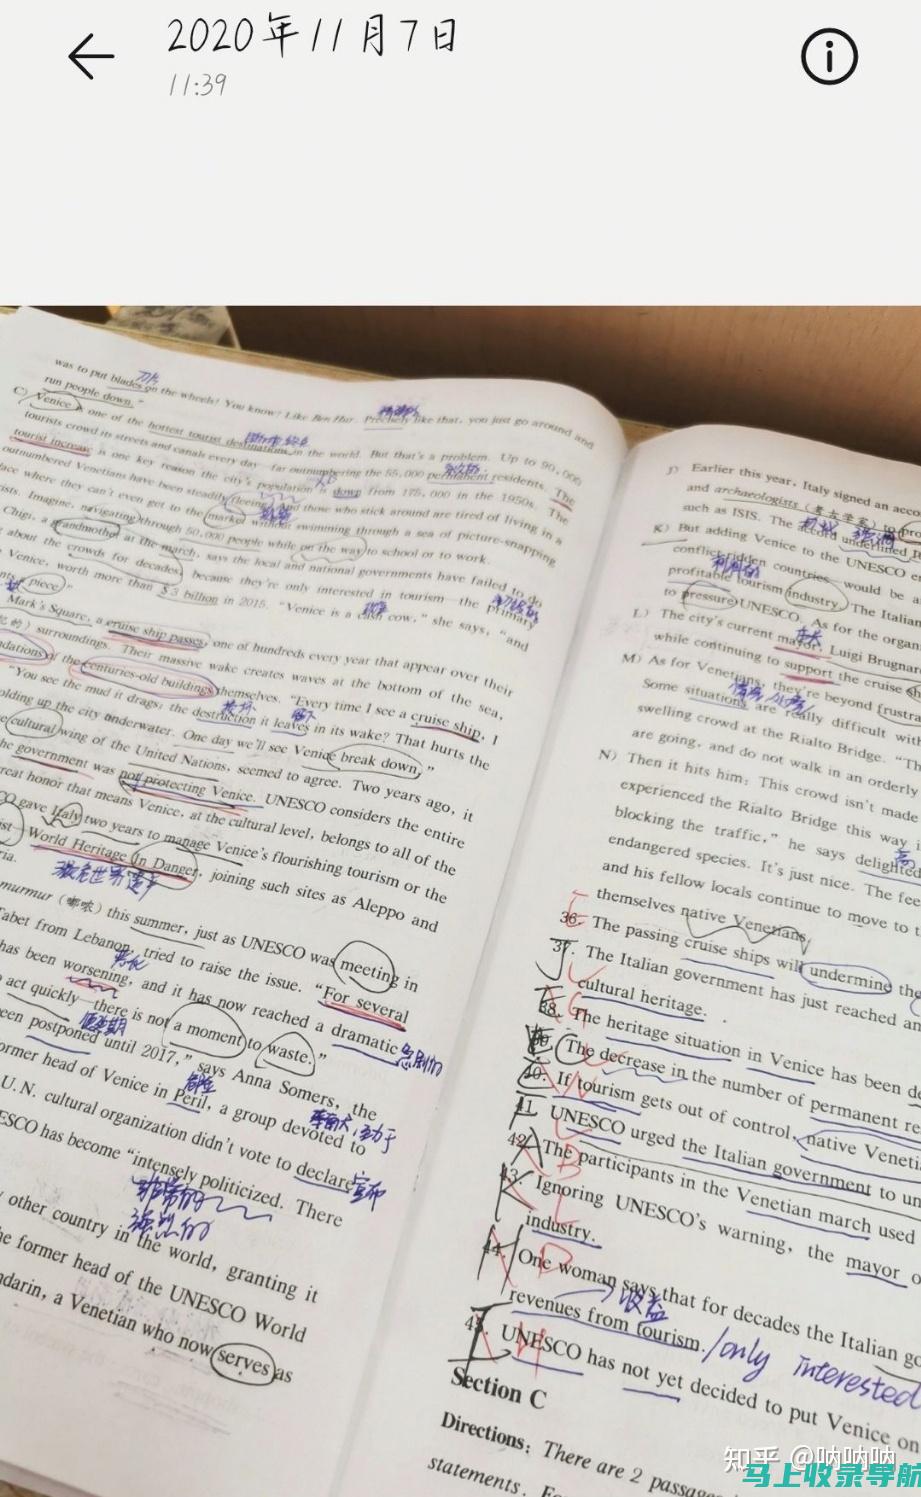 2020年11月7日
11:39
was to put blades on the wheels? You know? Like Ben Hur. Precisely like that, you just go around and
刀片
run people down."
C) Venice is one of the hottest tourist destinations in the world. But that's a problem. Up to 90,000
tourists crowd its streets and canals every day—far outnumbering the 55,000 permanent residents. The
tourist increase is one key reason the city's population is down from 175,000 in the 1950s. The
outnumbered Venetians have been steadily fleeing. And those who stick around are tired of living in a
lace where they can't even get to the market without swimming through a sea of picture-snapping
ists. Imagine, navigating through 50,000 people while on the way to school or to work.
Chigi, a grandmother at the march, says the local and national governments have failed to do
about the crowds for decades, because they're only interested in tourism—the primary
Venice, worth more than $3 billion in 2015. "Venice is a cash cow," she says, "and
piece."
Mark's Square, a cruise ship passes, one of hundreds every year that appear over their
surroundings. Their massive wake creates waves at the bottom of the sea,
ndations of the centuries-old buildings themselves. "Every time I see a cruise ship, I
"You see the mud it drags; the destruction it leaves in its wake? That hurts the
olding up the city underwater. One day we'll see Venice break down."
cultural wing of the United Nations, seemed to agree. Two years ago, it
he government was not protecting Venice. UNESCO considers the entire
reat honor that means Venice, at the cultural level, belongs to all of the
CO gave Italy two years to manage Venice's flourishing tourism or the
ist World Heritage In Danger, joining such sites as Aleppo and
ria.
murmur（嘟哝）this summer, just as UNESCO was meeting in
Tabet from Lebanon, tried to raise the issue. "For several
has been worsening, and it has now reached a dramatic
恶化
act quickly—there is not a moment to waste."
急剧的
een postponed until 2017," says Anna Somers, the
ormer head of Venice in Peril, a group devoted to
U.N. cultural organization didn't vote to declare
宣布
ESCO has become "intensely politicized. There
非常的
强烈的
other country in the world, granting it
e former head of the UNESCO World
ndarin, a Venetian who now serves as
J) Earlier this year, Italy signed an acco
and archaeologists（考古学家）to pro
such as ISIS. The accord underlined It
K) But adding Venice to the UNESCO en
conflict-ridden countries would be a
profitable tourism industry. The Italian
to pressure UNESCO. As for the organ
L) The city's current mayor, Luigi Brugnar
市长
while continuing to support the cruise sh
M) As for Venetians, they're beyond frustra
Some situations are really difficult with
swelling crowd at the Rialto Bridge. "Th
are going, and do not walk in an orderly
N) Then it hits him: This crowd isn't made
experienced the Rialto Bridge this way i
blocking the traffic," he says delighted
endangered species. It's just nice. The fee
and his fellow locals continue to move to t
themselves native Venetians.
36. The passing cruise ships will undermine the
37. The Italian government has just reached an
cultural heritage.
38. The heritage situation in Venice has been de
39. The decrease in the number of permanent re
40. If tourism gets out of control, native Veneti
41 UNESCO urged the Italian government to un
42 The participants in the Venetian march used
43 Ignoring UNESCO's warning, the mayor o
industry.
44. One woman says that for decades the Italian go
revenues from tourism. /only interested
收益
45 UNESCO has not yet decided to put Venice on
Section C
Directions: There are 2 passages
statements. Fo
知乎 @呐呐呐
马上收录导航